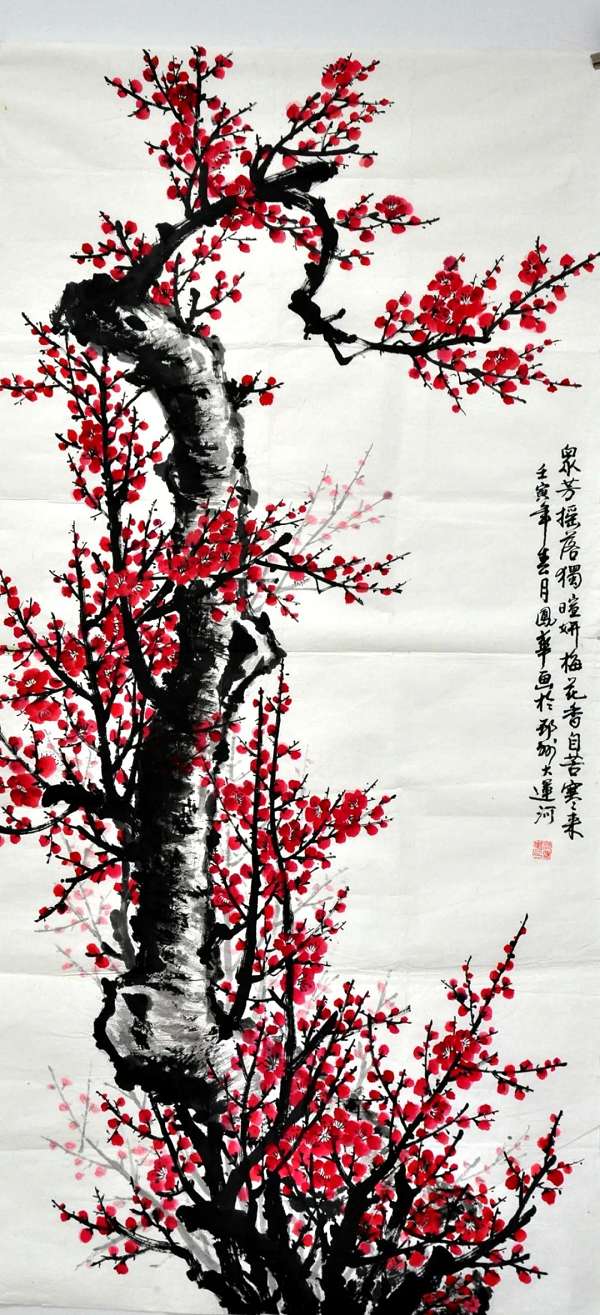 衆芳摇落獨暄妍梅花香自苦寒来
壬寅年春月鳳華画於邳州大運河